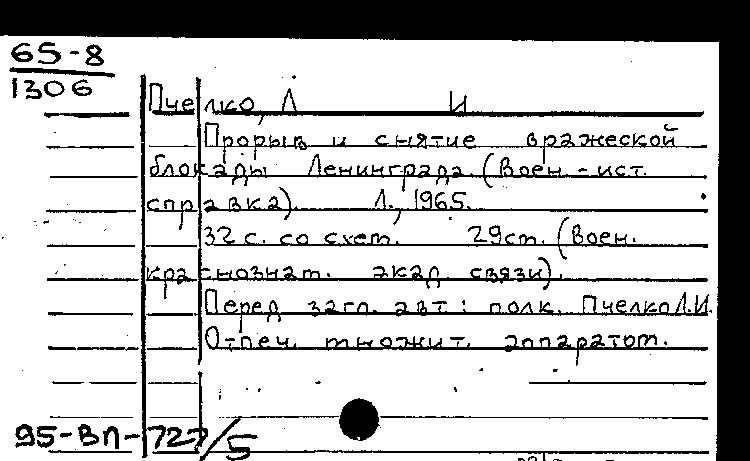 65-8
1306
Пчелко, Л И
Прорыв и снятие вражеской
блокады Ленинграда. (Воен.-ист.
справка). Л., 1965.
32 с. со схем. 29 см. (Воен.
краснознам. акад. связи).
Перед загл. авт: полк. Пчелко Л.И.
Отпеч. множит. аппаратом.
95-ВП-727/5